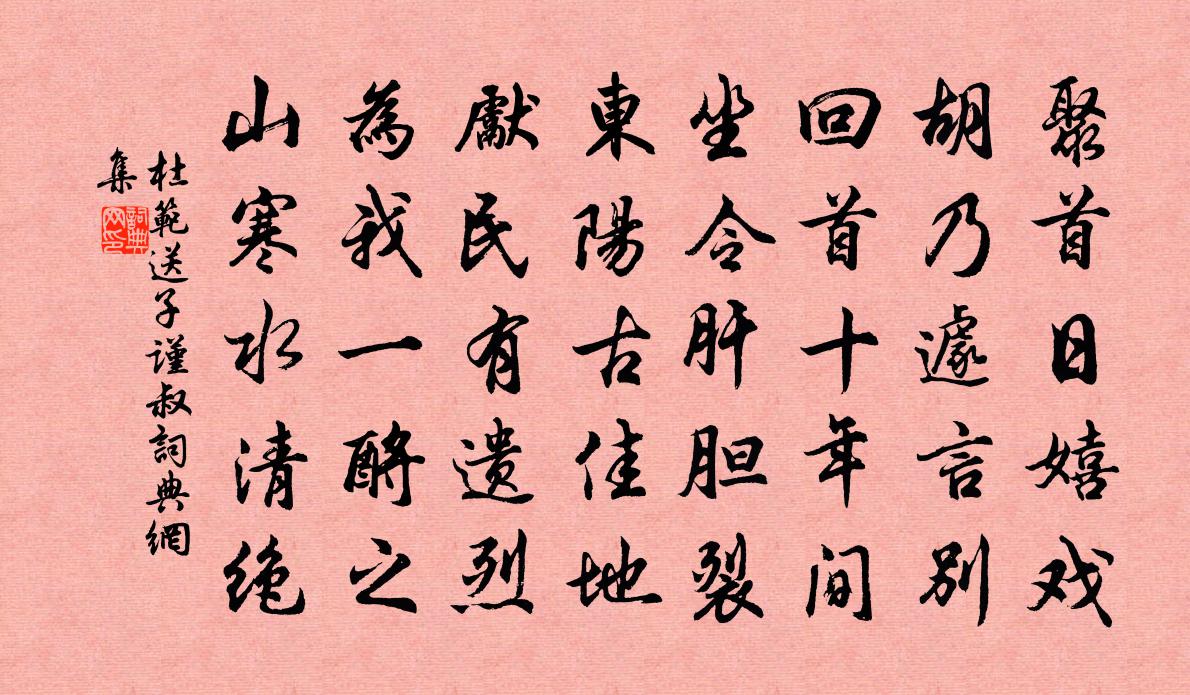 聚首日嬉戏
胡乃遽言别
回首十年间
坐令肝胆裂
東陽古佳地
獻民有遗烈
為我一酹之
山寒水清绝
杜範送子谨叔詞典網
集
詞典
网印